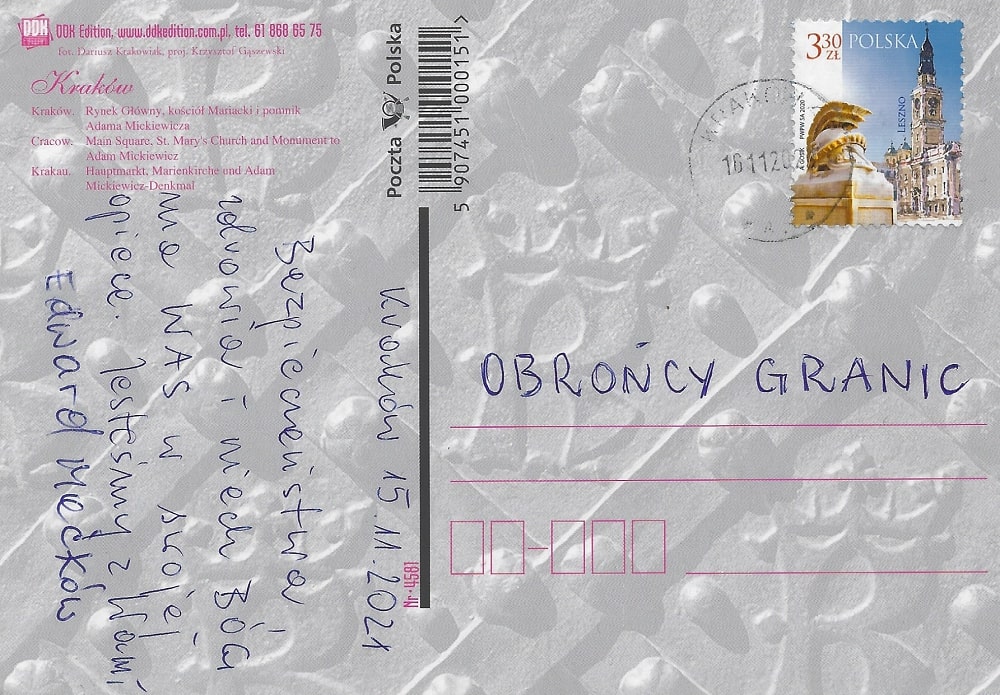 DDK Edition, www.ddkedition.com.pl, tel. 61 868 65 75
fot. Dariusz Krakowiak, proj. Krzysztof Gąszewski
Kraków
Kraków. Rynek Główny, kościół Mariacki i pomnik
Adama Mickiewicza
Cracow. Main Square, St. Mary's Church and Monument to
Adam Mickiewicz
Krakau. Hauptmarkt, Marienkirche und Adam
Mickiewicz-Denkmal
Poczta Polska
5 907451 000151 >
Nr. 4581
Kraków 15.11.2021
Bezpieczeństwa
zdrowia i niech Bóg
ma WAS w swojej
opiece. Jesteśmy z Wami
Edward Mećków
3 30 ZŁ POLSKA
LESZNO
PWPW SA 2020
KRAKÓW
OBROŃCY GRANIC